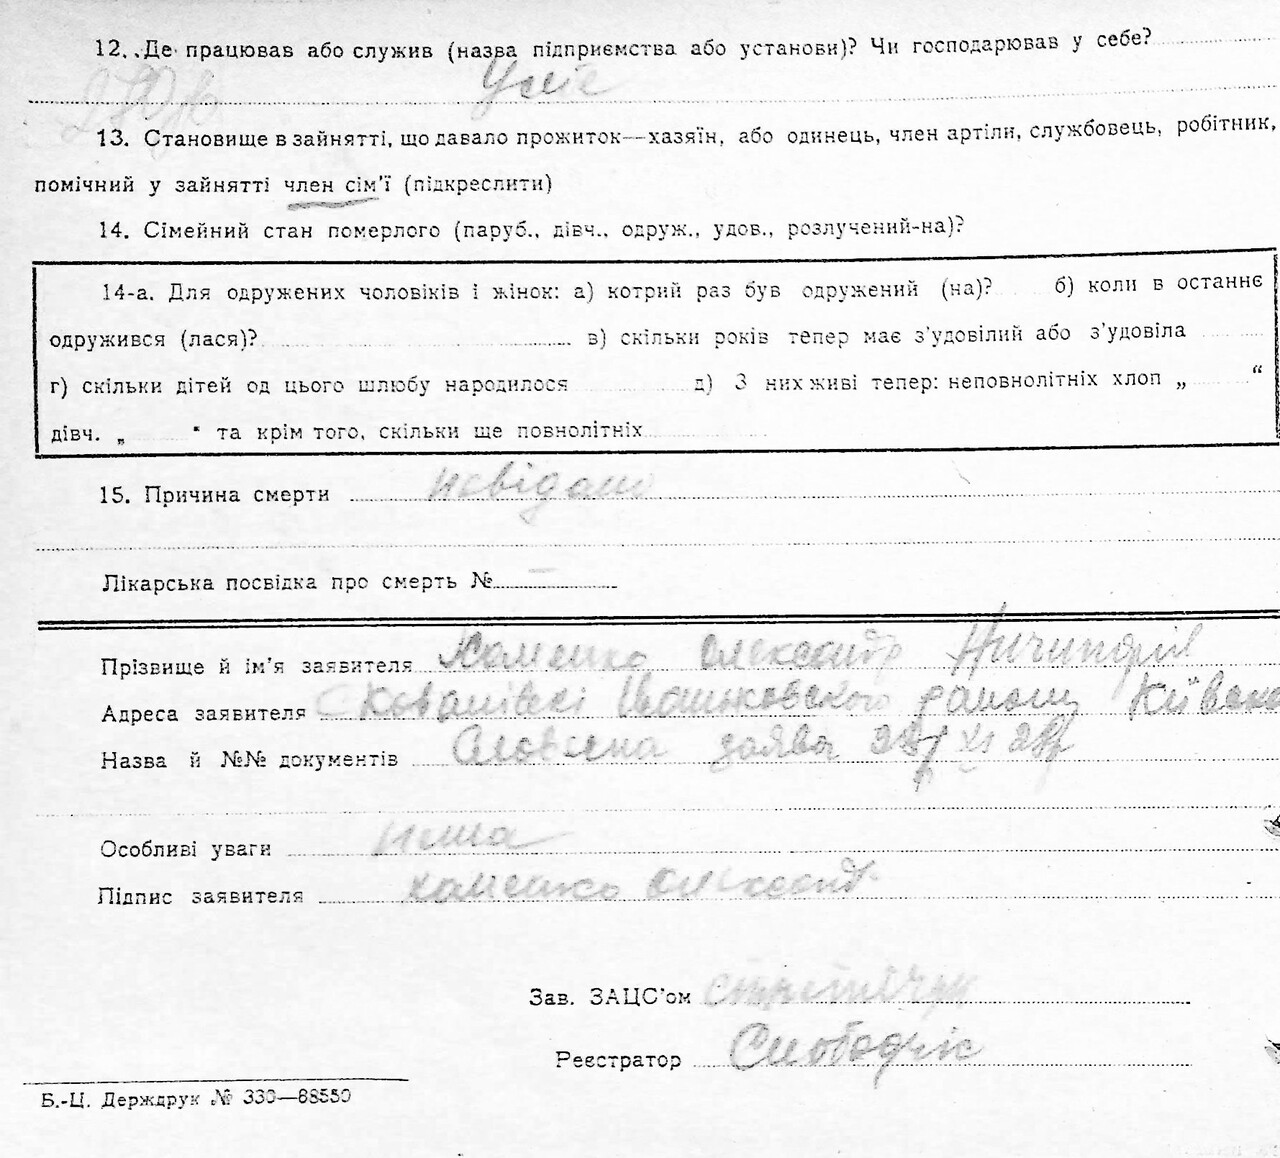 12. Де працював або служив (назва підприємства або установи)? Чи господарював у себе?
13. Становище в зайнятті, що давало прожиток—хазяїн, або одинець, член артіли, службовець, робітник,
помічний у зайнятті член сім'ї (підкреслити)
14. Сімейний стан померлого (паруб., дівч., одруж., удов., розлучений-на)?
14-а. Для одружених чоловіків і жінок: а) котрий раз був одружений (на)? б) коли в останнє
одружився (лася)? в) скільки років тепер має з'удовілий або з'удовіла
г) скільки дітей од цього шлюбу народилося д) З них живі тепер: неповнолітніх хлоп „ “
дівч. „ “ та крім того, скільки ще повнолітніх
15. Причина смерти невідома
Лікарська посвідка про смерть №
Прізвище й ім'я заявителя Хоменко Олександр Ничипорів
Адреса заявителя району Київ
Назва й №№ документів Словесна заява
Особливі уваги нема
Підпис заявителя Хоменко Олександ
Зав. ЗАЦС'ом
Реєстратор
Б.-Ц. Держдрук № 330—88550